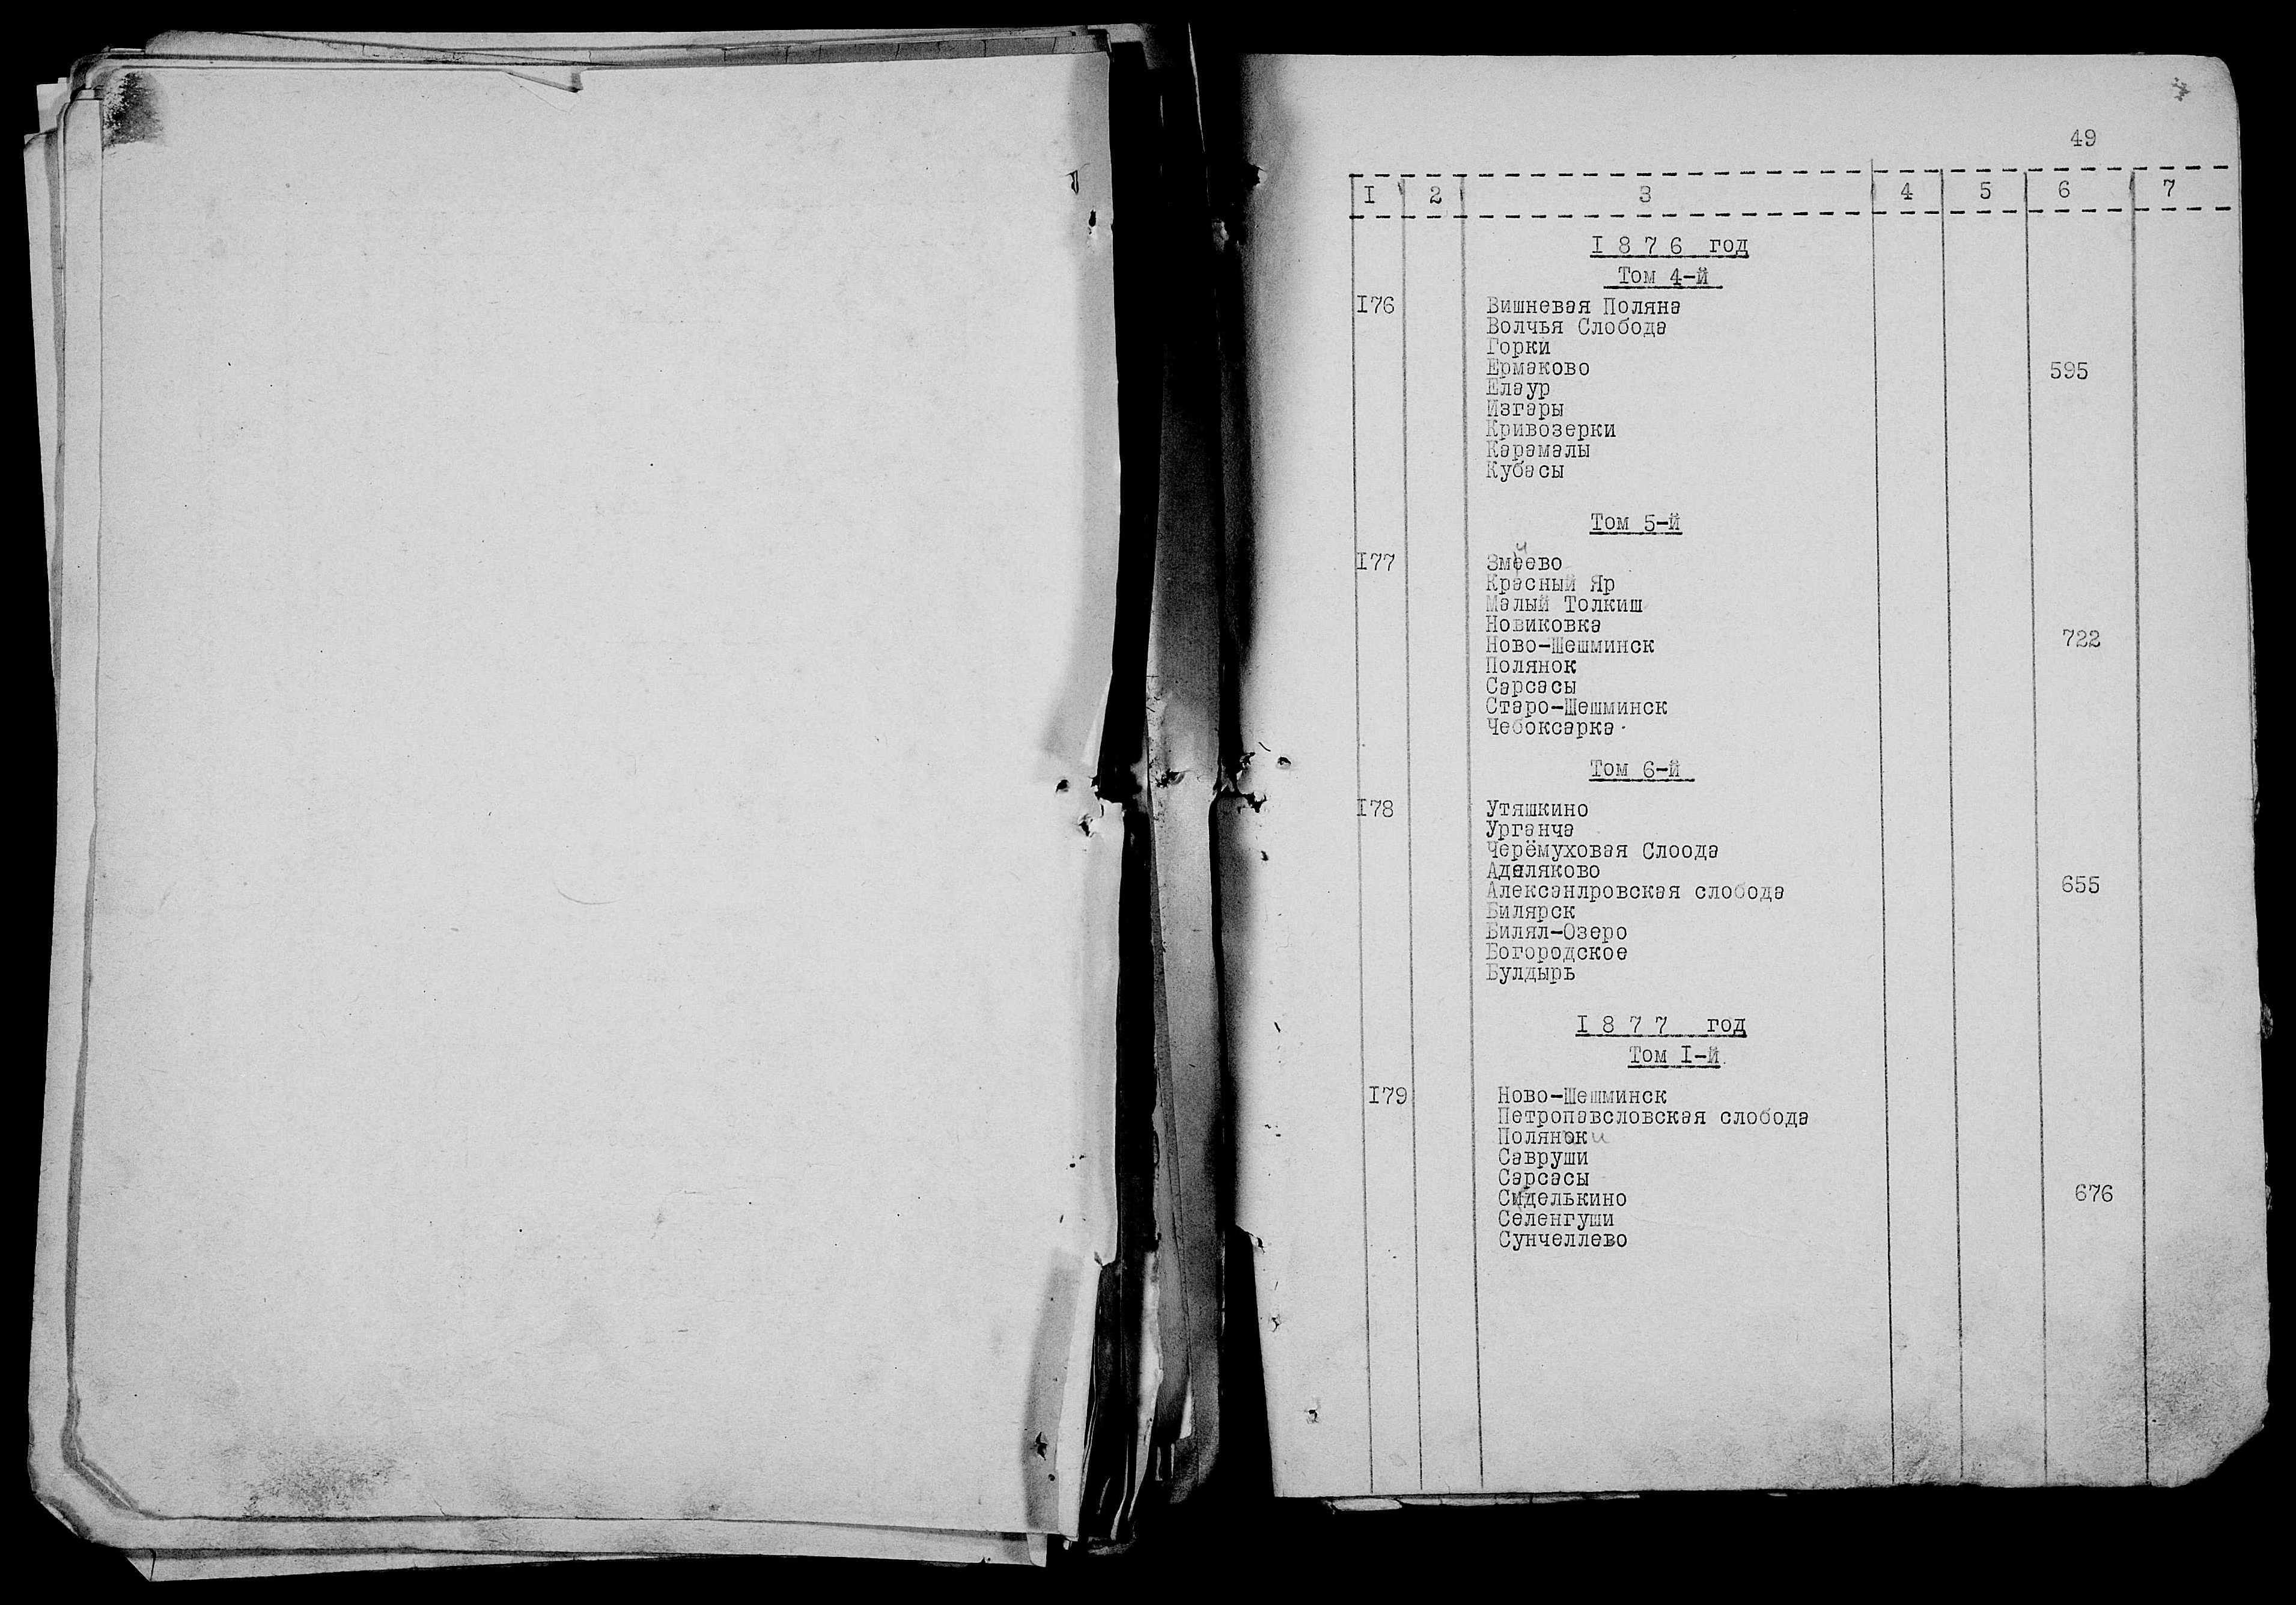 49
I 2 3 4 5 6 7
I 8 7 6 год
Том 4-й
I76 Вишневая Поляна
Волчья Слобода
Горки
Ермаково 595
Елаур
Изгары
Кривозерки
Карамалы
Кубасы
Том 5-й
I77 Змеево
Красный Яр
Малый Толкиш
Новиковка
Ново-Шешминск 722
Полянок
Сарсасы
Старо-Шешминск
Чебоксарка
Том 6-й
I78 Утяшкино
Урганча
Черёмуховая Слоода
Аделяково
Алексанлровская слобода 655
Билярск
Билял-Озеро
Богородское
Булдырь
I 8 7 7 год
Том I-й
I79 Ново-Шешминск
Петропавсловская слобода
Полянки
Савруши
Сарсасы
Сиделькино 676
Селенгуши
Сунчеллево